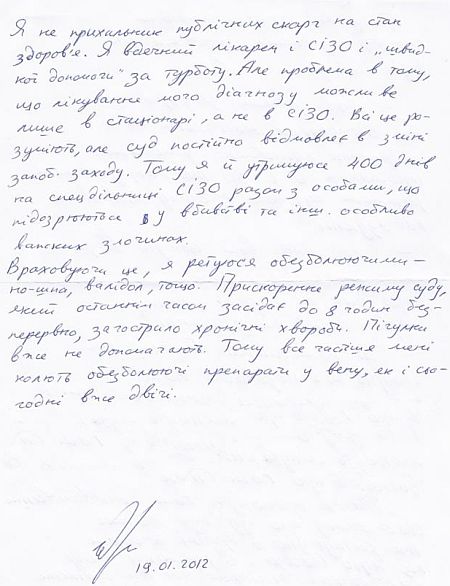 Я не прихильник публічних скарг на стан
здоров'я. Я вдячний лікарям і СІЗО і „швид-
кої допомоги" за турботу. Але проблема в тому,
що лікування мого діагнозу можливе
лише в стаціонарі, а не в СІЗО. Всі це ро-
зуміють, але суд постійно відмовляє в зміні
запоб. заходу. Тому я й утримуюся 400 днів
на спецдільниці СІЗО разом з особами, що
підозрюються у вбивстві та інш. особливо
важких злочинах.
Враховуючи це, я рятуюся обезболюючими –
но-шпа, валідол, тощо. Прискорення режиму суду,
який останнім часом засідає до 8 годин без-
перервно, загострило хронічні хвороби. Пігулки
вже не допомагають. Тому все частіше мені
колють обезболюючі препарати у вену, як і сьо-
годні вже двічі.
19.01.2012